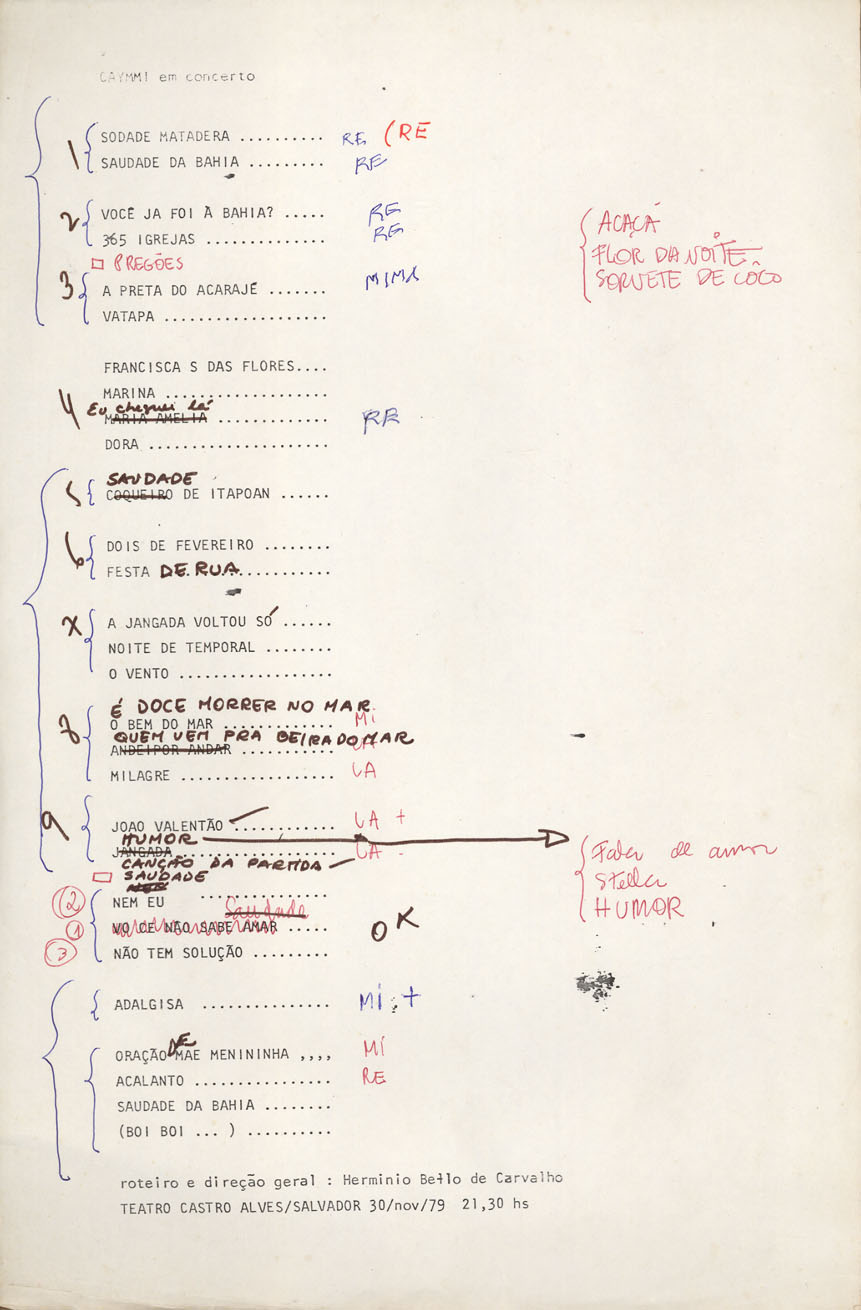 CAYMMI em concerto
1 SODADE MATADERA .......... RE (RE
SAUDADE DA BAHIA ......... RE
2 VOCÊ JA FOI À BAHIA? ..... RE
365 IGREJAS .............. RE
PREGÕES
3 A PRETA DO ACARAJÉ ....... MIMI
VATAPA ...................
ACAÇÁ
FLOR DA NOITE
SORVETE DE CÔCO
FRANCISCA S DAS FLORES....
MARINA ...................
Eu cheguei lá
4 MARIA AMELIA ............. RE
DORA .....................
SAUDADE
5 COQUEIRO DE ITAPOAN ......
6 DOIS DE FEVEREIRO ........
FESTA DE RUA...........
X A JANGADA VOLTOU SÓ ......
NOITE DE TEMPORAL ........
O VENTO ..................
É DOCE MORRER NO MAR
8 O BEM DO MAR ............. Mi
QUEM VEM PRA BEIRA DO MAR
ANDEIPOR ANDAR ...........
MILAGRE .................. LA
9 JOAO VALENTÃO ............ LA +
HUMOR
JANGADA .................. LA -
CANÇÃO DA PARTIDA
SAUDADE
Falar de amor
Stella
HUMOR
2 NEM EU ..............
Saudade
1 VO CE NÃO SABE AMAR ..... OK
3 NÃO TEM SOLUÇÃO .........
ADALGISA ............... Mi +
ORAÇÃO DE MAE MENININHA ,,,, MÍ
ACALANTO ................. RE
SAUDADE DA BAHIA ........
(BOI BOI ... ) ..........
roteiro e direção geral : Herminio Bello de Carvalho
TEATRO CASTRO ALVES/SALVADOR 30/nov/79 21,30 hs